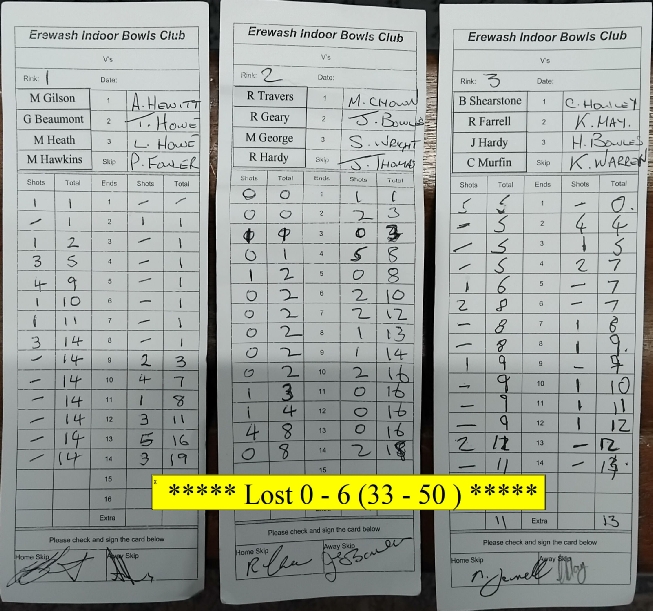 Erewash Indoor Bowls Club
V's
Rink: 1 Date:
M Gilson 1 A. HEWITT
G Beaumont 2 T. HOWE
M Heath 3 L. HOWE
M Hawkins Skip P. FOWLER
Shots Total Ends Shots Total
1 1 1 - -
- 1 2 1 1
1 2 3 - 1
3 5 4 - 1
4 9 5 - 1
1 10 6 - 1
1 11 7 - 1
3 14 8 - 1
- 14 9 2 3
- 14 10 4 7
- 14 11 1 8
- 14 12 3 11
- 14 13 5 16
- 14 14 3 19
15
16
Extra
Please check and sign the card below
Home Skip Away Skip
Erewash Indoor Bowls Club
V's
Rink: 2 Date:
R Travers 1 M. CHOWN
R Geary 2 J. BOWLES
M George 3 S. WRIGHT
R Hardy Skip J. THOMAS
Shots Total Ends Shots Total
0 0 1 1 1
0 0 2 2 3
3 0 3
0 1 4 5 8
1 2 5 0 8
0 2 6 2 10
0 2 7 2 12
0 2 8 1 13
0 2 9 1 14
0 2 10 2 16
1 3 11 0 16
1 4 12 0 16
4 8 13 0 16
0 8 14 2 18
15
***** Lost 0 - 6 (33 - 50 ) *****
Please check and sign the card below
Home Skip Away Skip
Erewash Indoor Bowls Club
V's
Rink: 3 Date:
B Shearstone 1 C. HOWLEY
R Farrell 2 K. MAY.
J Hardy 3 H. BOWLES
C Murfin Skip K. WARREN
Shots Total Ends Shots Total
5 5 1 - 0.
- 5 2 4 4
- 5 3 1 5
- 5 4 2 7
1 6 5 - 7
2 8 6 - 7
- 8 7 1 8
- 8 8 1 9.
1 9 9 - 9
- 9 10 1 10
- 9 11 1 11
- 9 12 1 12
2 11 13 - 12
- 11 14 - 13.
11 Extra 13
Please check and sign the card below
Home Skip Away Skip